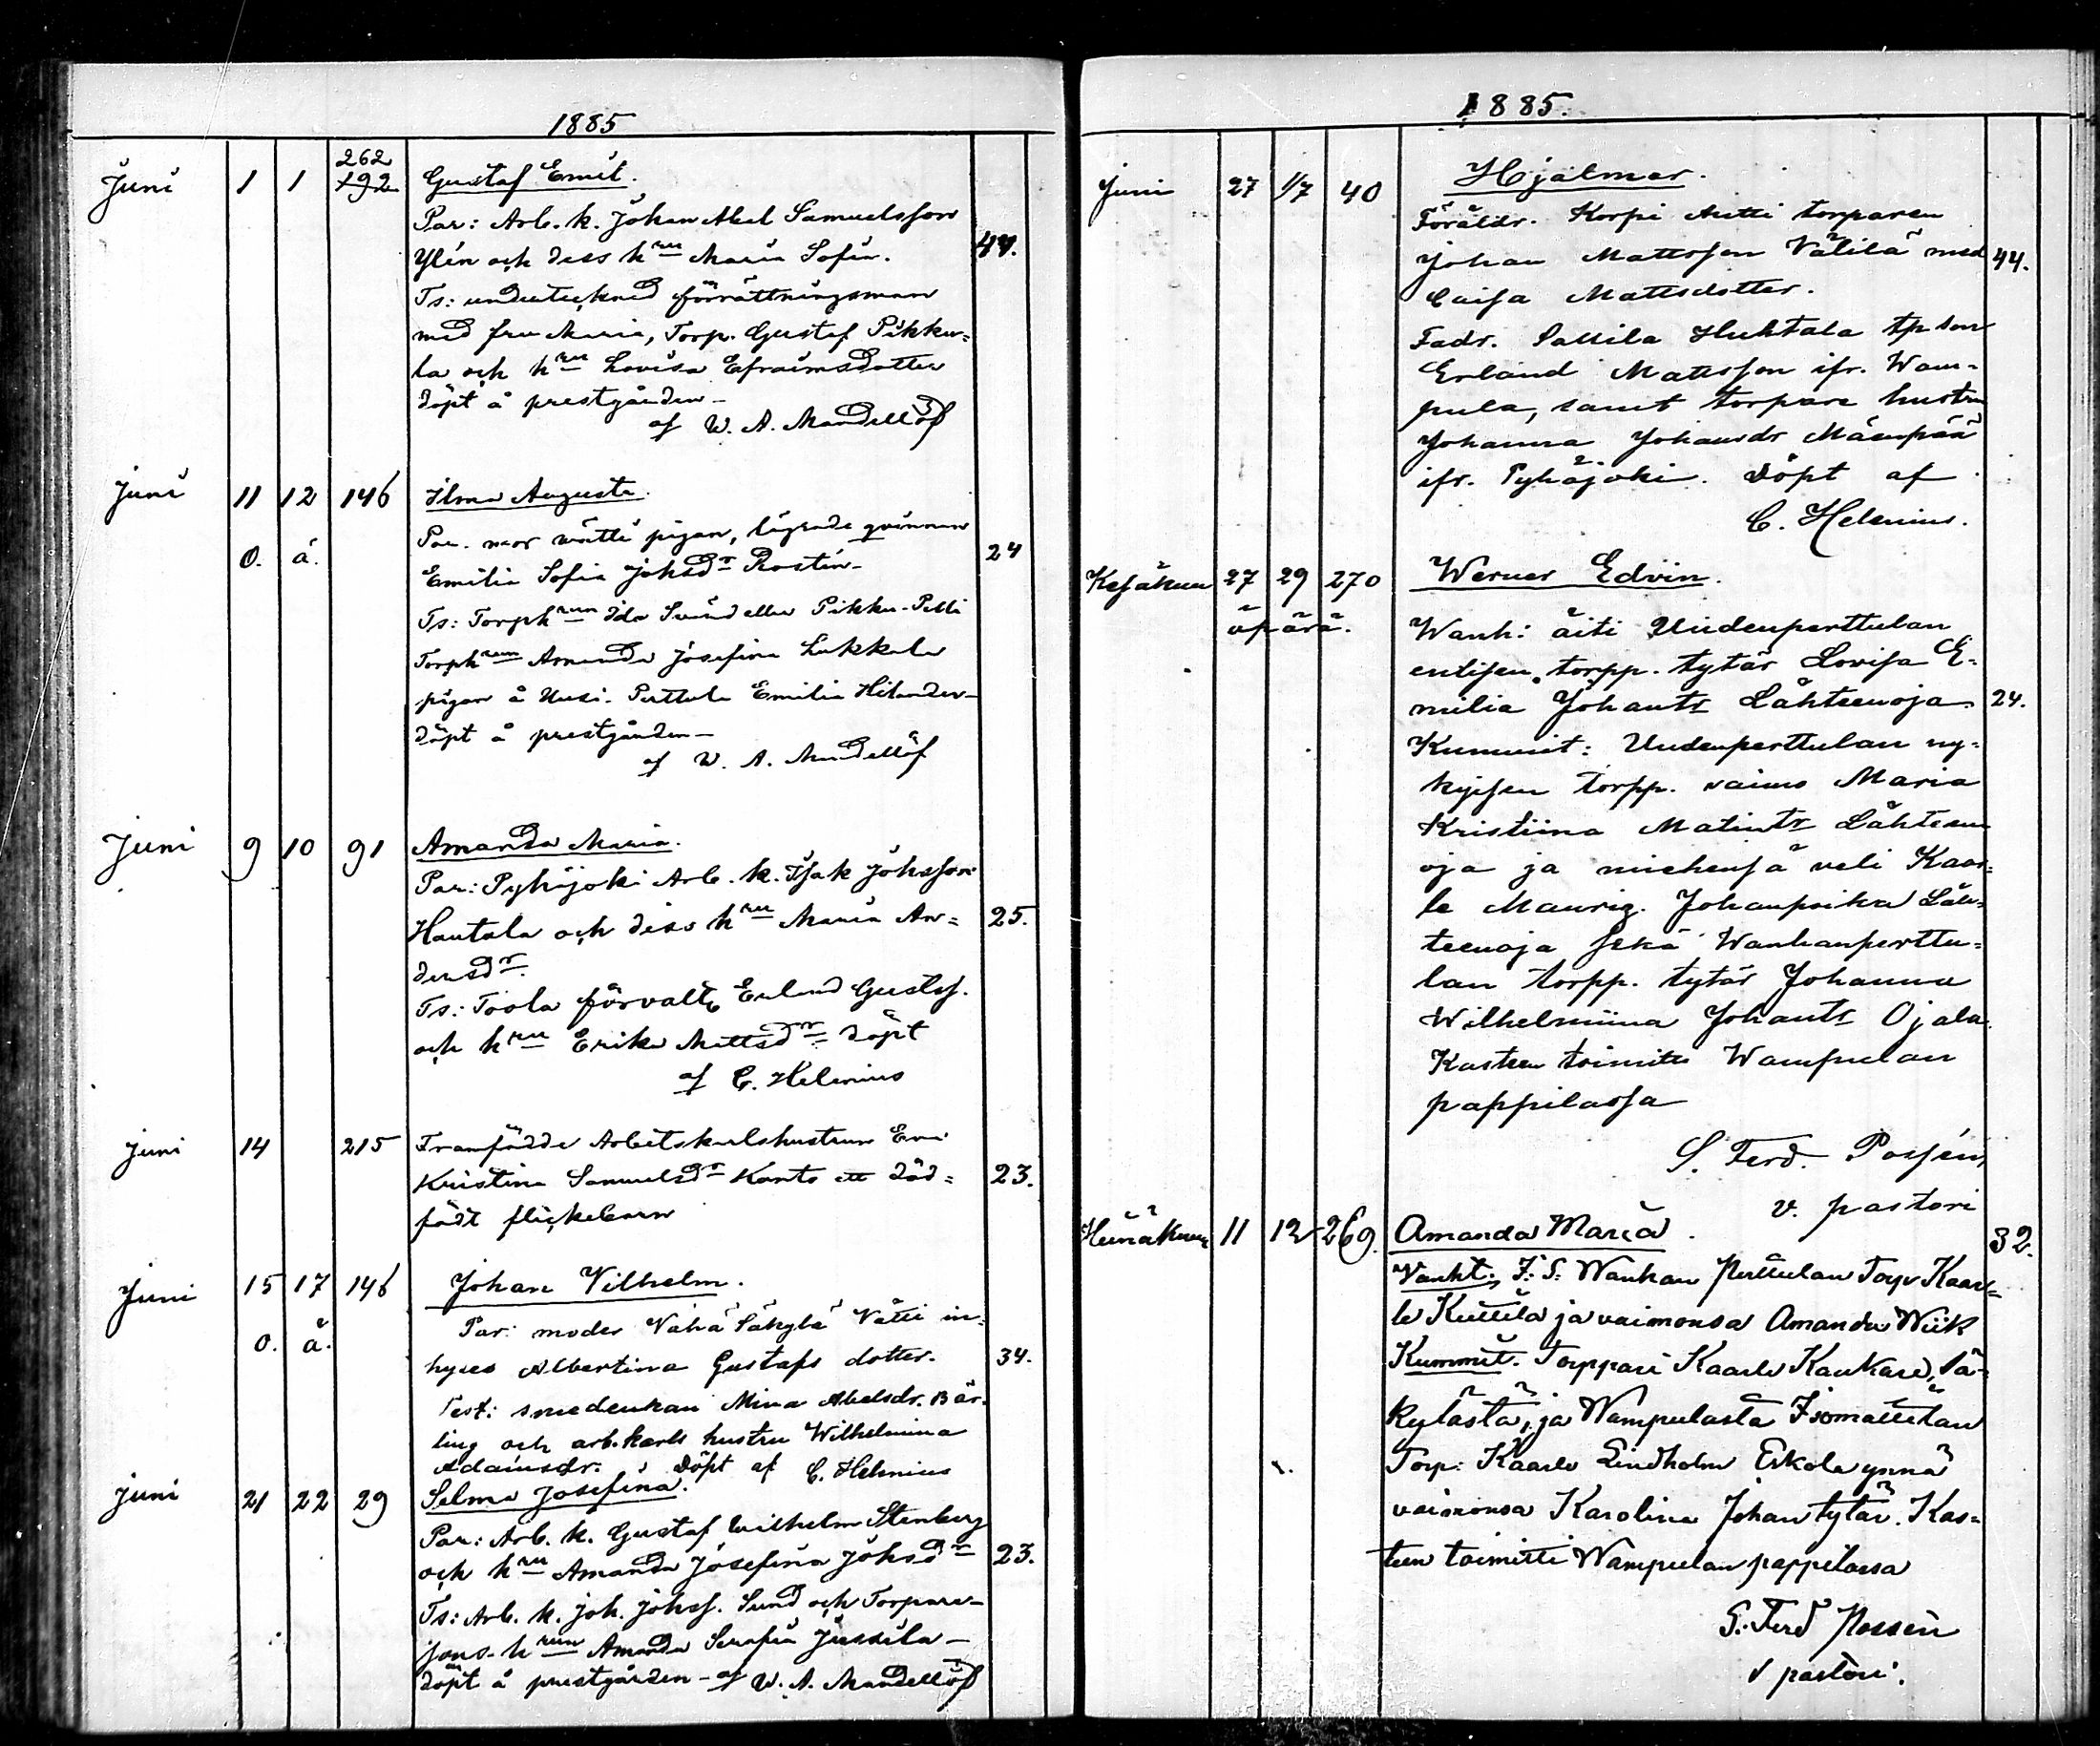 1885
Juni 1 1 262 192 Gustaf Emil.
Par: Arb. k. Johan Abel Samuelsson
Ylén och dess hru Maria Sofia. 44.
Ts: undertecknad förrättningsman
med fru Maria, Torp. Gustaf Pikku=
la och hru Lovisa Efraimsdotter
döpt å prestgården—
af W. A. Mandellöf
Juni 11 12 146 Ilma Augusta.
o. ä. Par. mor wätti pigan, lägrade qvinnan
Emilia Sofia Johsdr Rostén— 24
Ts: Torphrun Ida Svändelle Pikku-Pelli
Torphrun Amanda Josefina Lukkala
pigan å Uusi-Perttula Emilia Hilander—
döpt å prestgården—
af W. A. Mandellöf
Juni 9 10 91 Amanda Maria.
Par: Pyhäjoki Arb. k. Isak Johsson
Hautala och dess hru Maria An= 25.
dersdr.
Ts: Toola förvalt. Erland Gustfs.
och hru Erika Mattsdr döpt
af C. Helenius
Juni 14 215 Framfödde Arbetskarlshustrun Eva
Kristina Samuelsdr Kanto ett död= 23.
född flickebarn
Juni 15 17 146 Johan Vilhelm.
o. ä. Par: moder Vähä Säkylä Vätti in=
hyses Albertina Gustafs dotter. 34.
Test: smedenkan Mina Abelsdr. Bär=
ling och arb.karls hustru Wilhelmina
Adamsdr. Döpt af C. Helenius
Juni 21 22 29 Selma Josefina.
Par: Arb. k. Gustaf Wilhelm Stenberg
och hru Amanda Josefina Johsdr 23.
Ts: Arb. k. Joh. Johss. Sund och Torpare-
sons-hrun Amanda Serafia Jussila—
döpt å prestgården—af W. A. Mandellöf
1885.
Juni 27 1/7 40 Hjalmar.
Föräldr. Korpi Antti torparen
Johan Mattsson Välilä med 44.
Caisa Mattsdotter.
Fadr. Sassila Huhtala tp son
Erland Mattsson ifr. Wam=
pula, samt torpare hustru
Johanna Johansdr Mäenpää
ifr. Pyhäjoki. Döpt af
C. Helenius.
Kesäkuu 27 29 270 Werner Edvin.
äpärä. Wanh: äiti Uudenperttulan
entisen torpp. tytär Lovisa E=
milia Johantr Lähteenoja 24.
Kummit: Uudenperttulan ny=
kyisen torpp. vaimo Maria
Kristiina Matintr Lähteen
oja ja miehensä veli Kaar=
le Mauriz Johanpoika Läh=
teenoja sekä Wanhanperttu=
lan torpp. tytär Johanna
Wilhelmiina Johantr Ojala.
Kasteen toimitti Wampulan
pappilassa
S. Ferd. Possén,
v. pastori
Heinäkuu 11 12 269. Amanda Maria. 32.
Vanht: I: S: Wanhan Perttulan Torp. Kaar=
le Kuttila ja vaimonsa Amanda Wiik
Kummit. Torppari Kaarle Kankare, Sä=
kylästä, ja Wampulasta Isomattilan
Torp: Kaarle Lindholm Eskola ynnä
vaimonsa Karolina Johan tytär. Kas=
teen toimitti Wampulan pappilassa
S: Ferd Possén
v pastori.